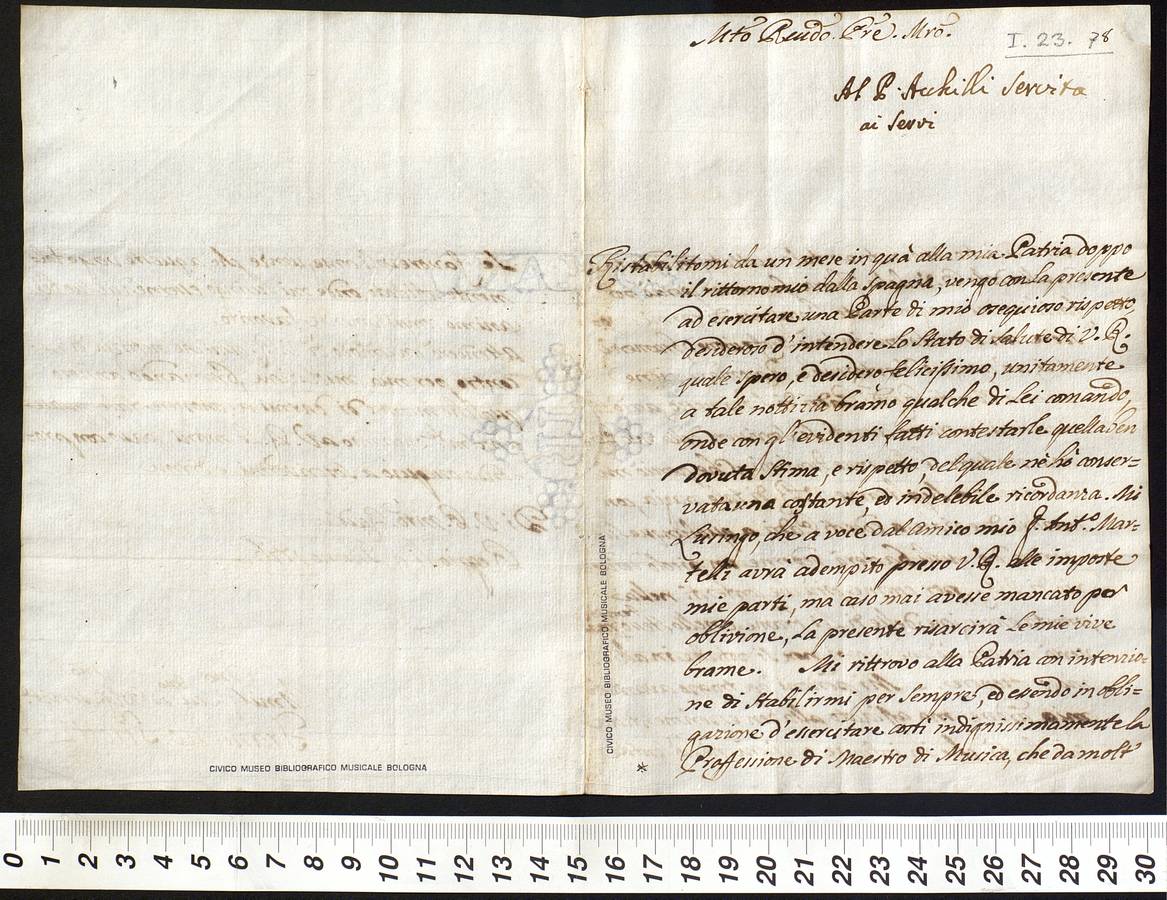 Mto Rendo. Pre. Mro.
I. 23. 78
Al P. Achilli Servita
ai Servi
Ristabilitomi da un mese in quà alla mia Patria doppo
il rittorno mio dalla Spagna, vengo con la presente
ad esercitare una Parte di mio osequioso rispetto,
desideroso d'intendere lo Stato di Salute di V. R.
quale Spero, e desidero felicissimo, unitamente
a tale nottizia bramo qualche di Lei comando,
onde con gl'evidenti fatti contestarle quella ben
dovuta Stima, e rispetto, del quale nè hò conser=
vata una costante, ed indelebile ricordanza. Mi
Lusingo, che a voce dal Amico mio F. Anto. Mar=
telli avrà adempito presso V. R. alle imposte
mie parti, ma caso mai avesse mancato per
oblivione, La presente risarcirà Le mie vive
brame. Mi rittrovo alla Patria con intenzio=
ne di Stabilirmi per Sempre, ed esendo in obli=
gazione d'essercitare costì indignissimamente la
Proffessione di Maestro di Musica, che da molt'
CIVICO MUSEO BIBLIOGRAFICO MUSICALE BOLOGNA
CIVICO MUSEO BIBLIOGRAFICO MUSICALE BOLOGNA
0 1 2 3 4 5 6 7 8 9 10 11 12 13 14 15 16 17 18 19 20 21 22 23 24 25 26 27 28 29 30